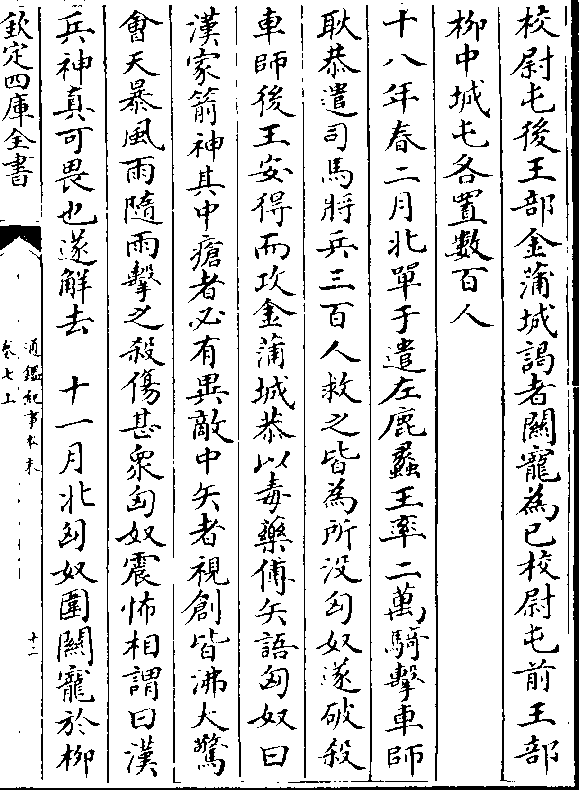 校尉屯後王部金蒲城謁者關寵為已校尉屯前王部
柳中城屯各置數百人
十八年春二月北單于遣左鹿蠡王率二萬騎擊車師
耿恭遣司馬將兵三百人救之皆為所沒匈奴遂破殺
車師後王安得而攻金蒲城恭以毒藥傅矢語匈奴曰
漢家箭神其中瘡者必有異敵中矢者視創皆沸大驚
會天暴風雨隨雨擊之殺傷甚衆匈奴震怖相謂曰漢
兵神真可畏也遂解去　十一月北匈奴圍關寵於柳
欽定四庫全書
通鑑紀事本末
卷七上
十二